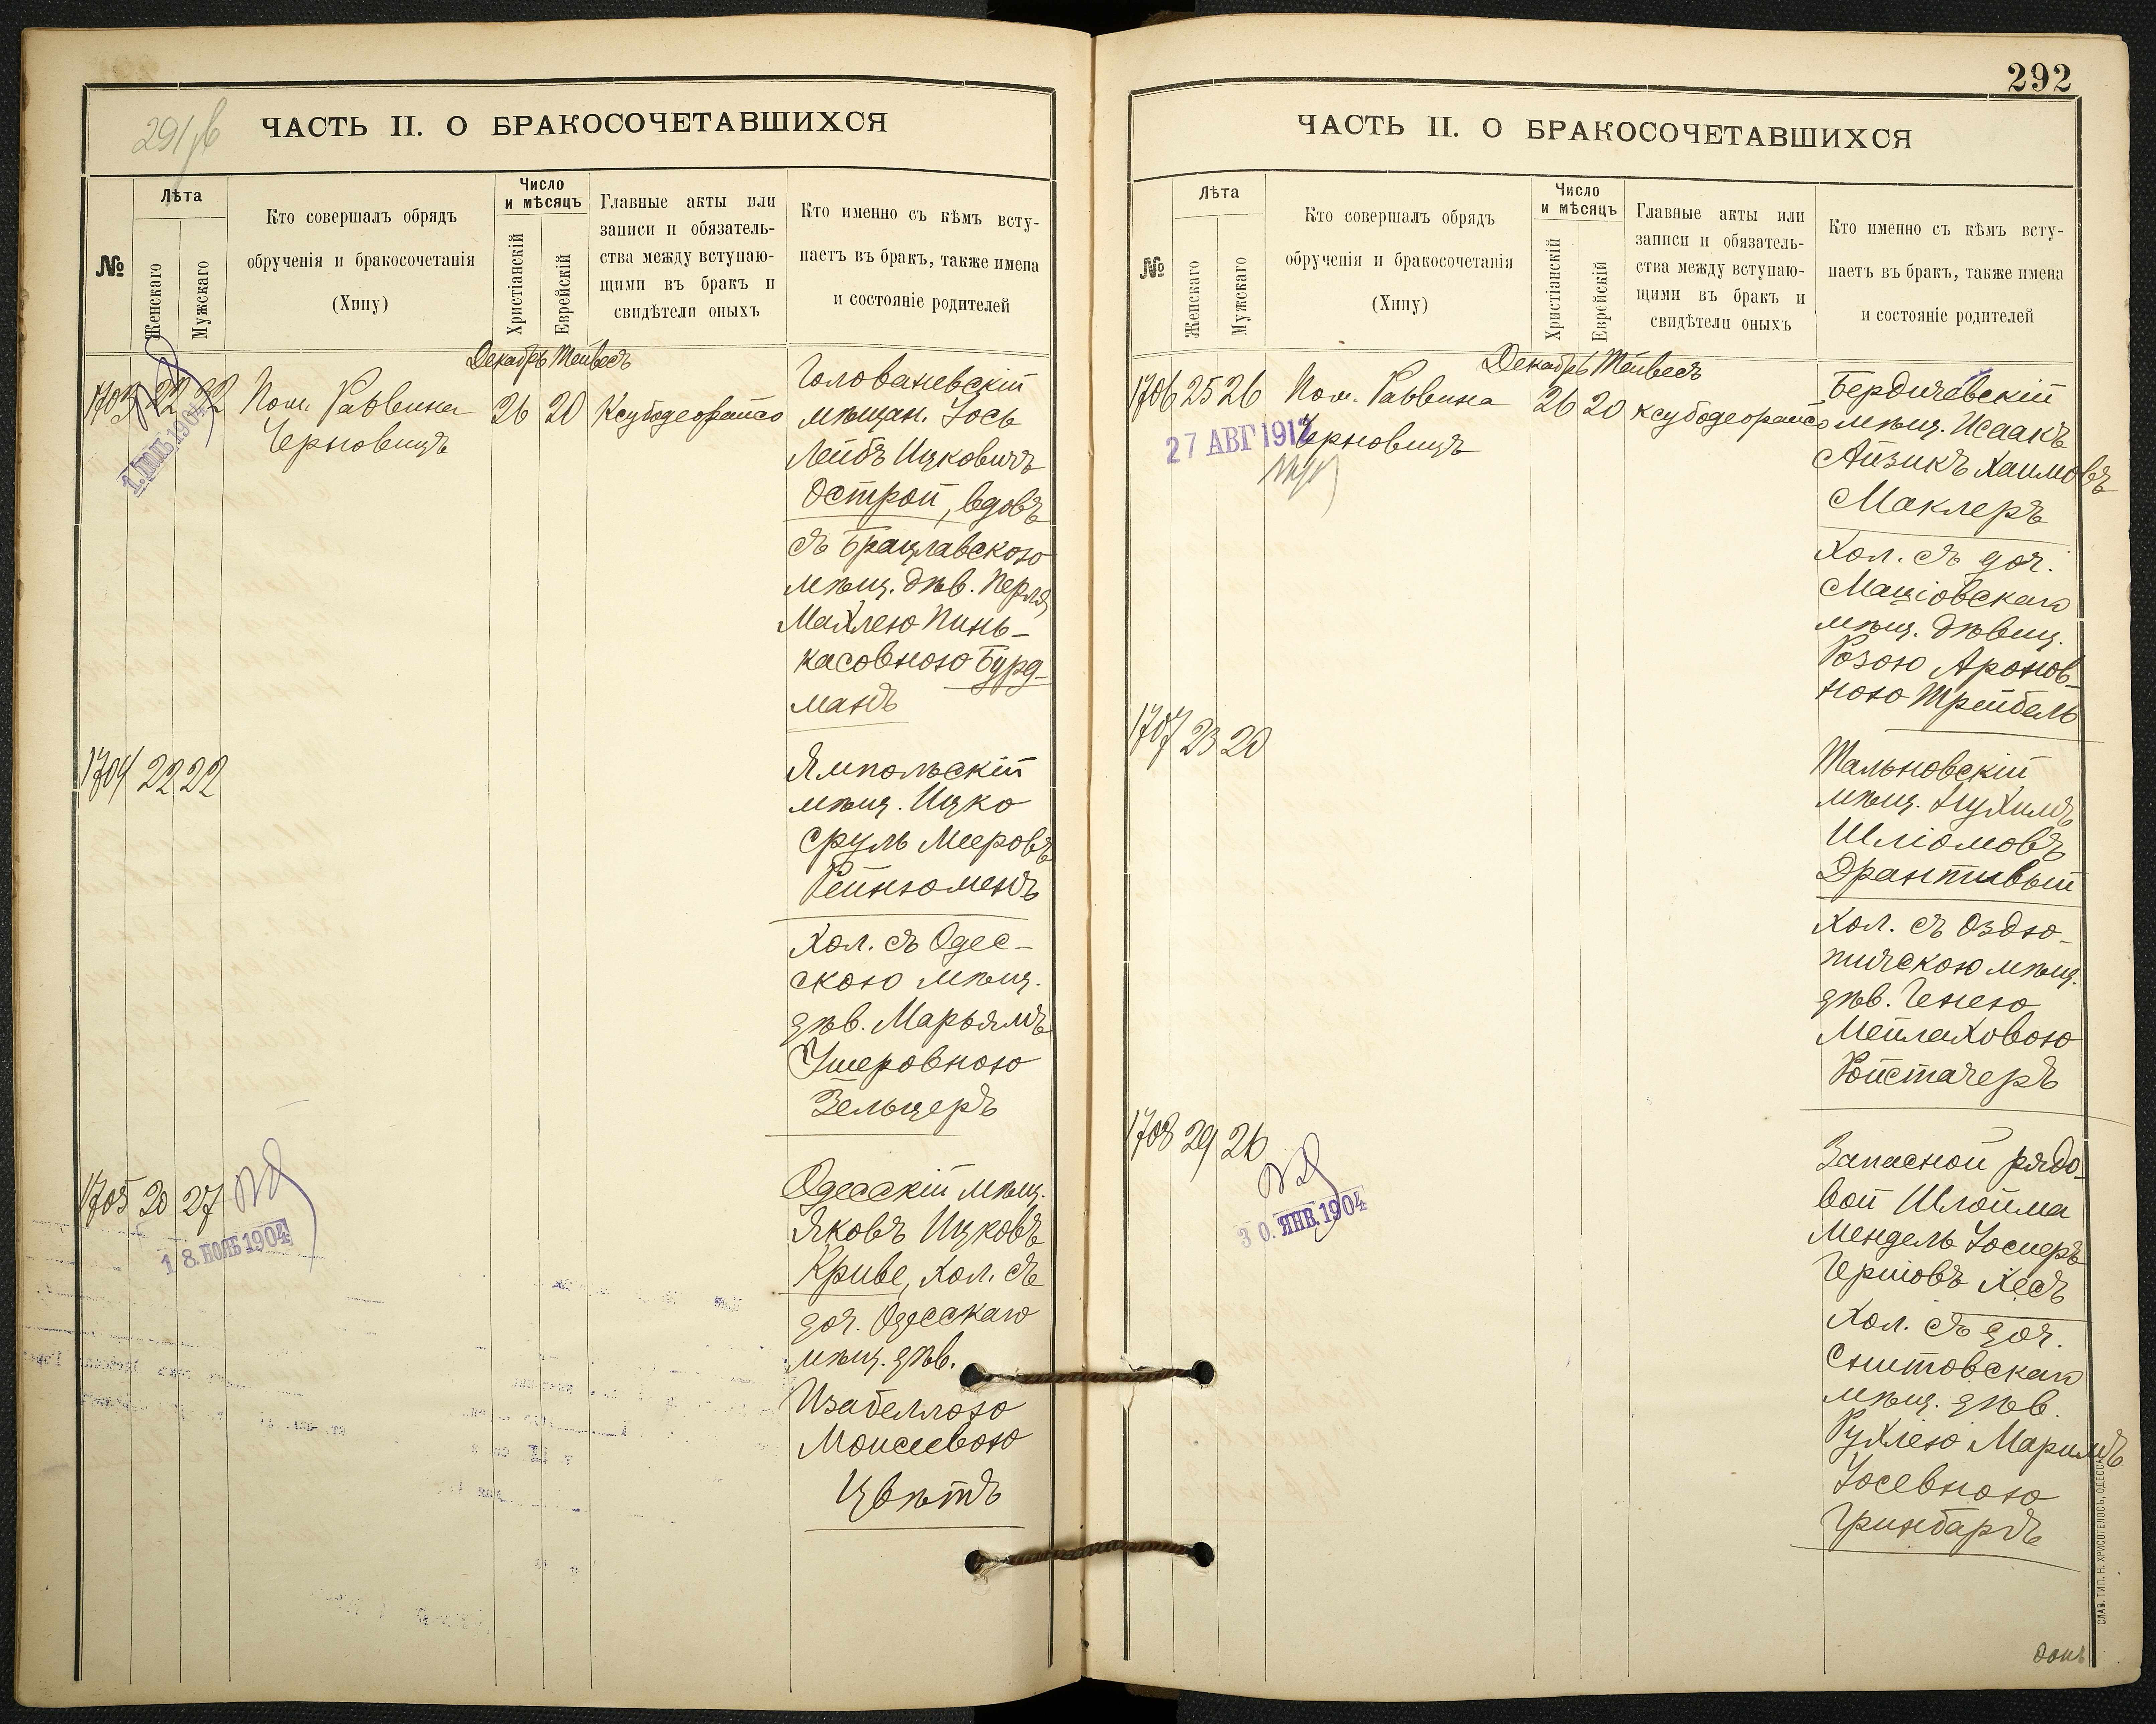 291 об
ЧАСТЬ II. О БРАКОСОЧЕТАВШИХСЯ
№
Лѣта
Женскаго
Мужскаго
Кто совершалъ обрядъ
обрученія и бракосочетанія
(Хипу)
Число
и мѣсяцъ
Христіанскій
Еврейскій
Главные акты или
записи и обязатель-
ства между вступаю-
щими въ бракъ и
свидѣтели оныхъ
Кто именно съ кѣмъ всту-
паетъ въ бракъ, также имена
и состояніе родителей
Декабрь Тейвесъ
1703 22 22 Пом. Раввина 26 20 Ксубодеорайсо
Черновицъ
1904
Головоневскій
мѣщан. Іось
Лейбъ Ицковичъ
Острой, вдовъ
съ Брацлавскою
мѣщ. дѣв. Перля
Махлею Пинь-
касовною Бурд-
манъ
1704 22 22
Ямпольскій
мѣщ. Ицко
Сруль Мееровъ
Рейнгоменъ
Хол. съ Одес-
скою мѣщ.
дѣв. Марьямъ
Ушеровною
Зельцеръ
1705 20 27
18. НОЯБ 1904
Одесскій мѣщ.
Яковъ Ицковъ
Криве, хол. съ
доч. Одесскаго
мѣщ. дѣв.
Изабеллою
Моисеевою
Цвѣтъ
292
ЧАСТЬ II. О БРАКОСОЧЕТАВШИХСЯ
№
Лѣта
Женскаго
Мужскаго
Кто совершалъ обрядъ
обрученія и бракосочетанія
(Хипу)
Число
и мѣсяцъ
Христіанскій
Еврейскій
Главные акты или
записи и обязатель-
ства между вступаю-
щими въ бракъ и
свидѣтели оныхъ
Кто именно съ кѣмъ всту-
паетъ въ бракъ, также имена
и состояніе родителей
Декабрь Тейвесъ
1706 25 26 Пом. Раввина 26 20 ксубодеорайсо
Черновицъ
27 АВГ 1912
Бердичевскій
мѣщ. Исаакъ
Айзикъ Хаимовъ
Маклеръ
Хол. съ доч.
Маціовскаго
мѣщ. дѣвиц.
Розою Аронов-
ною Трейбель
1707 23 20
Тальновскій
мѣщ. Нухимъ
Шліомовъ
Драптивый
Хол. съ Оздю-
тичскою мѣщ.
дѣв. Генею
Мейлаховою
Ройстачеръ
1708 29 26
30. ЯНВ. 1904
Запасной рядо-
вой Шлойма
Мендель Іосиеръ
Гершовъ Хесъ
Хол. съ доч.
Снитовскаго
мѣщ. дѣв.
Рухлею Маримъ
Іосевною
Гринбаргъ
СЛАВ. ТИП. Н. ХРИСОГЕЛОСЪ, ОДЕССА